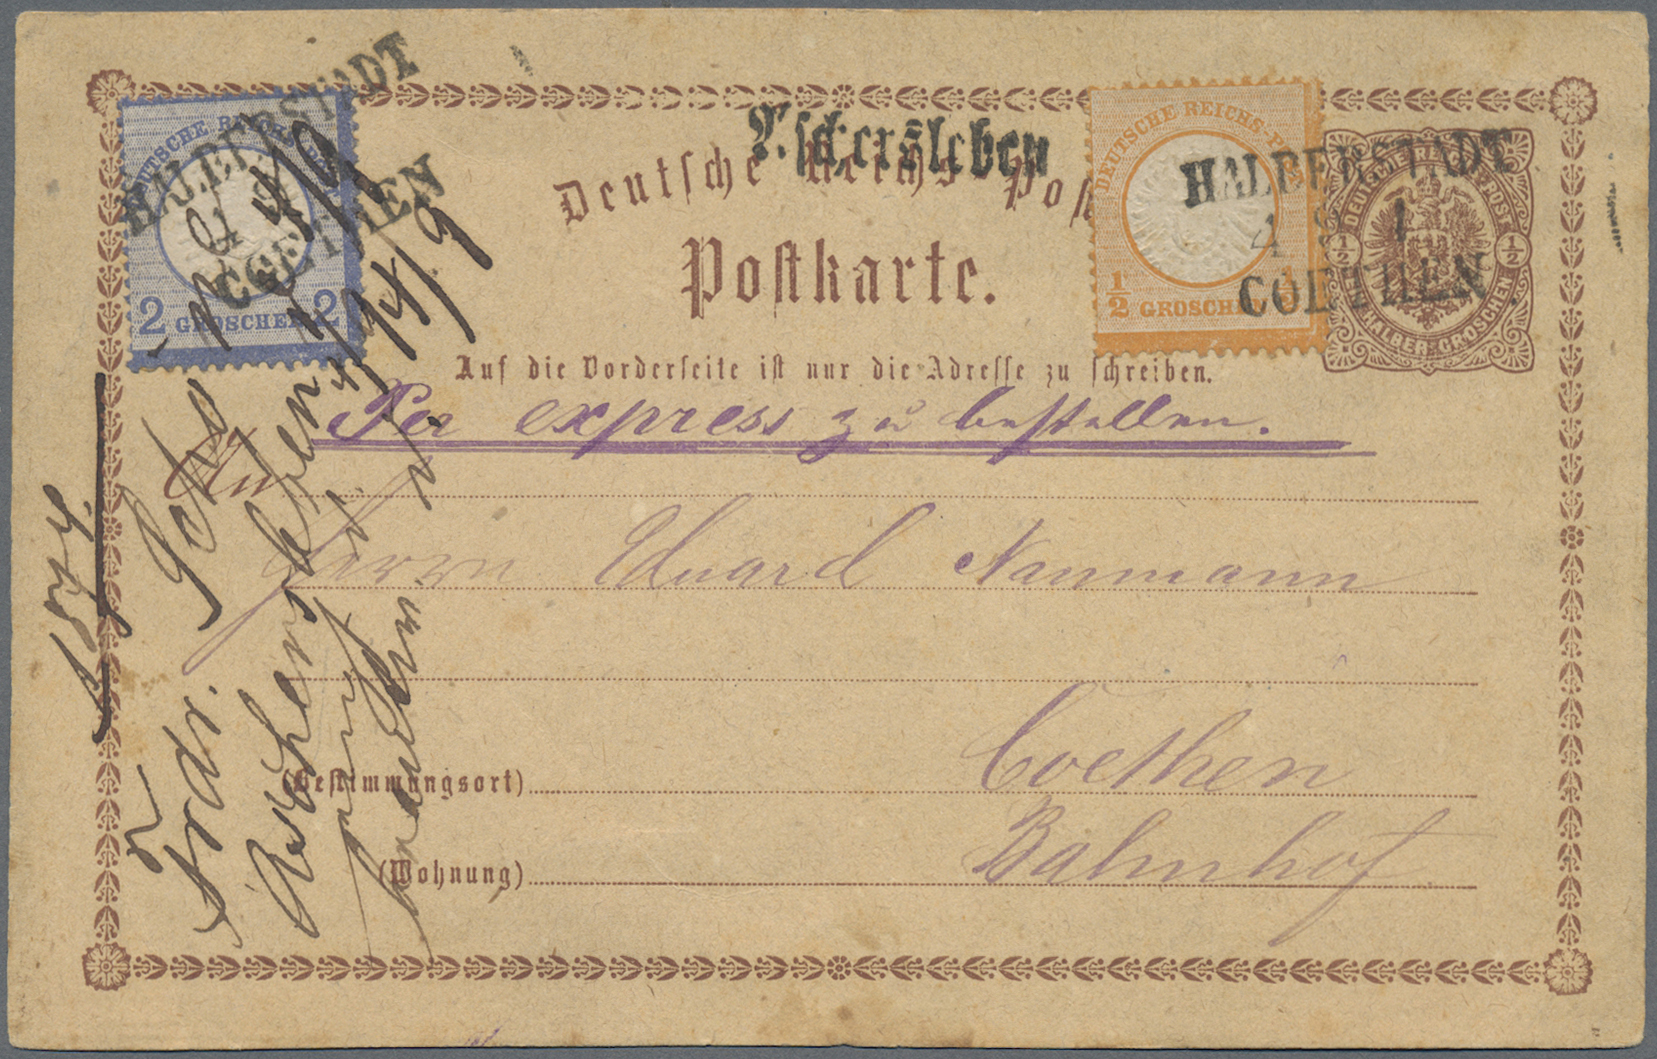 HALBERSTADT
COETHEN
DEUTSCHE REICHS-POST
2 GROSCHEN 2
Aschersleben
Deutsche Reichs-Post
Postkarte.
DEUTSCHE REICHS-POST
1/2 GROSCHEN 1/2
HALBERSTADT
4 9 I
COETHEN.
DEUTSCHE REICHSPOST
1/2 1/2
EIN HALBER GROSCHEN
Auf die Vorderseite ist nur die Adresse zu schreiben.
Per express zu bestellen.
An
Herrn Eduard Naumann
(Bestimmungsort) Coethen
(Wohnung) Bahnhof
1874.
Aschersleben 4/9